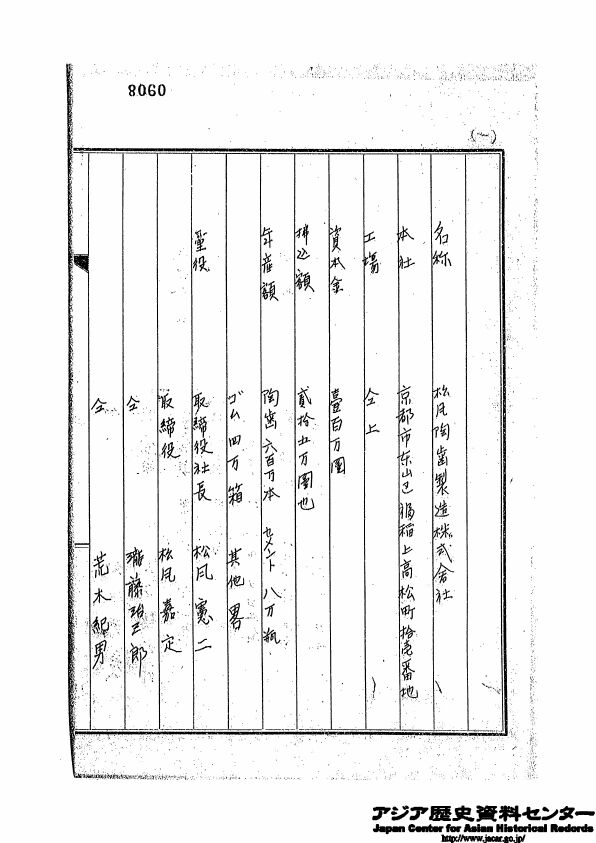 0908
(一)
名称 松风陶歯製造株式会社
本社 京都市东山区福稲上高松町拾壱番地
工場 仝上
資本金 壹百万圓
拂込額 貳拾五万圓也
年産額 陶歯六百万本 セメント 八万瓶
ゴム四万箱 其他畧
重役 取締役社長 松风憲二
取締役 松风嘉定
仝 瀧藤治三郎
仝 荒木紀男
アジア歴史資料センター
Japan Center for Asian Historical Records
http://www.jacar.go.jp/